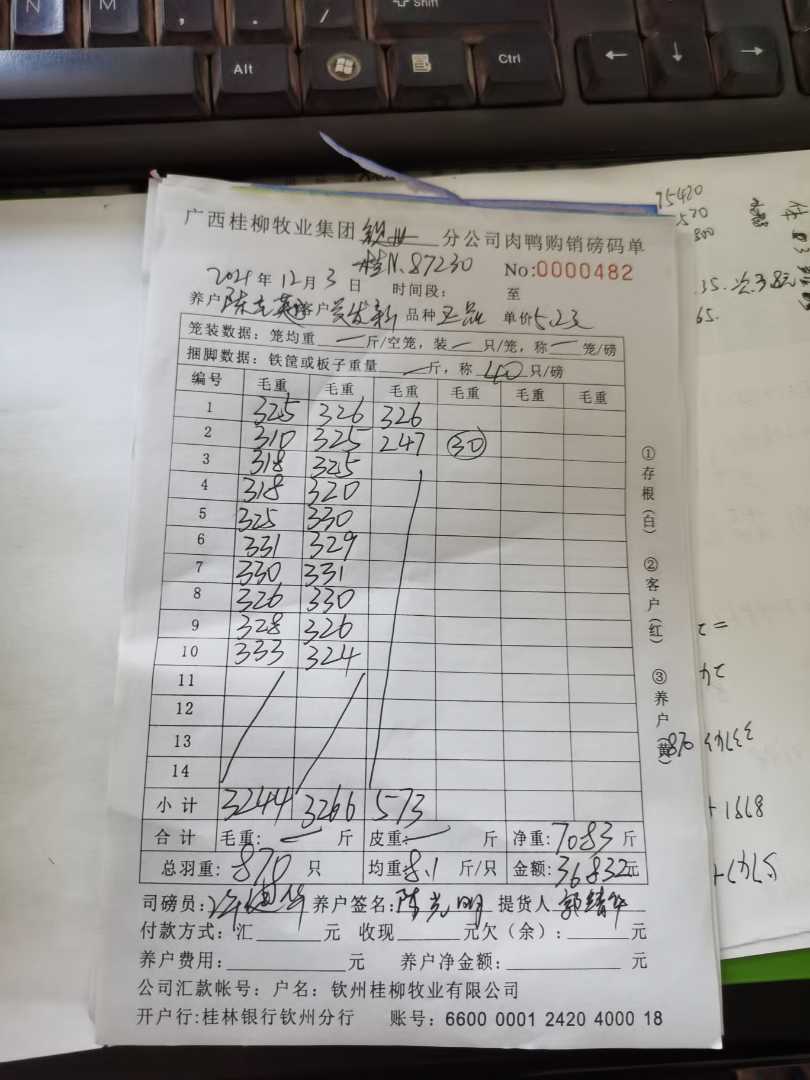 N M . /
⇧ Shift
Alt Ctrl ← ↓ →
75420
广西桂柳牧业集团 钦州 分公司肉鸭购销磅码单
桂N.87230
No:0000482
2021 年 12 月 3 日 时间段: 至
养户 客户 品种 单价 5.23
笼装数据: 笼均重 一 斤/空笼, 装 一 只/笼, 称 一 笼/磅
捆脚数据: 铁筐或板子重量 一 斤, 称 40 只/磅
编号 毛重 毛重 毛重 毛重 毛重 毛重
1 325 326 326
2 310 325 247 30
3 318 325
4 318 320
5 325 330
6 331 329
7 330 331
8 326 330
9 328 326
10 333 324
11
12
13
14
小计 3244 3266 573
合计 毛重: 一 斤 皮重: 一 斤 净重: 7083 斤
总羽重: 870 只 均重 8.1 斤/只 金额: 36832 元
司磅员: 养户签名: 陈光明 提货人
付款方式: 汇 元 收现 元欠（余）: 元
养户费用: 元 养户净金额: 元
公司汇款帐号: 户名: 钦州桂柳牧业有限公司
开户行:桂林银行钦州分行 账号: 6600 0001 2420 4000 18
①存根(白) ②客户(红) ③养户(黄)